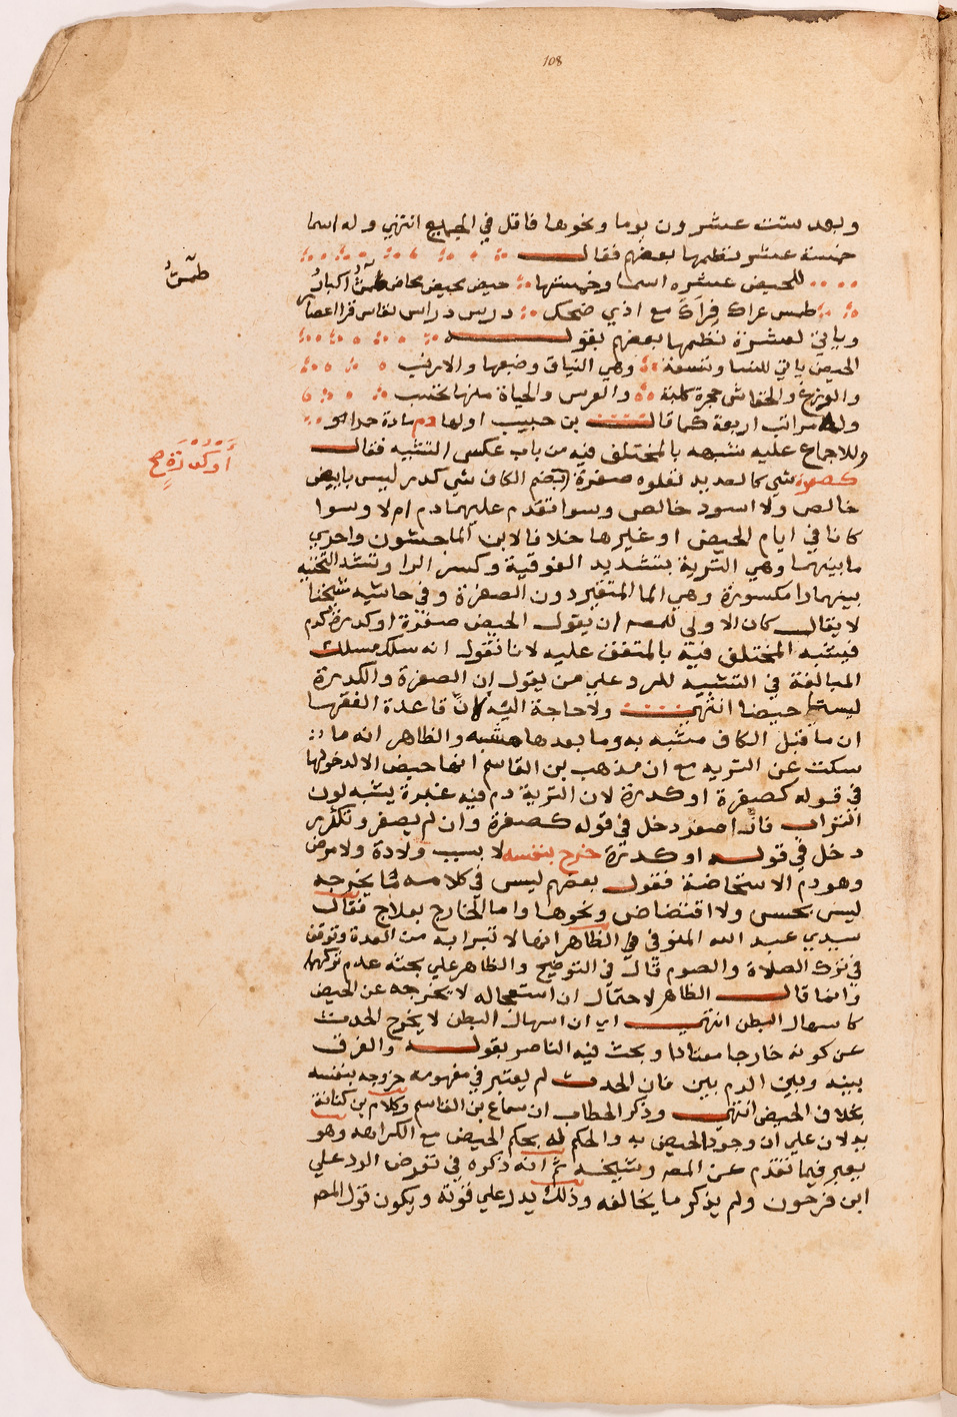 108
وبعد ستت عشرون يوما ونحوها فاقل في الجميع انتهي وله اسما
خمسة عشر نظمها بعضهم فقال
للحيض عشرة اسما وخمستها حيض محيض محاض طمث اكبار
طمس عراك فراك مع اذي ضحك درس دراس نفاس قرا اعصار
وياتي لعشرة نظمها بعضهم بقوله
الحيض ياتي للنسا وتسعة وهي النياق وضبعها والارنب
والوزغ والخفاش حجرة كلبة والعرس والحياة منها تحسب
وله مراتب اربعة كما قال بن حبيب اولها دم مادة حدا كو
وللاجماع عليه شبهه بالمختلف فيه من باب عكس التشبيه فقال
كصفرة شي كالصديد تعلوه صفرة بضم الكاف شي كدر ليس بابيض
خالص ولا اسود خالص وسوا تقدم عليهما دم ام لا وسوا
كانا في ايام الحيض او غيرها خلافا لابن الماجشون واحري
ما بينهما وهي الترية بتشديد الفوقية وكسر الرا وتشد التحتية
بينهما را مكسورة وهي الما المتغير دون الصفرة وفي حاشيه شيخنا
لا يقال كان الاولي للمص ان يقول الحيض صفرة او كدرة كدم
فيشبه المختلف فيه بالمتفق عليه لانا نقول انه سلك مسلك
المبالغة في التشبيه للرد علي من يقول ان الصفرة والكدرة
ليستا حيضا انتهي ولا حاجة اليه لان قاعدة الفقها
ان ما قبل الكاف مشبه به وما بعدها مشبه والظاهر انه ما
سكت عن التريه مع ان مذهب بن القاسم انها حيض الا لدخولها
في قوله كصفرة او كدرة لان الترية دم فيه غبرة يشبه لون
التراب فانه اصفر دخل في قوله كصفرة وان لم يصفر وتكدر
دخل في قوله او كدرة خرج بنفسه لا بسبب ولادة ولا مرض
وهو دم الاستحاضة فقول بعضهم ليس في كلامه ما يخرجه
ليس بحسن ولا اقتضاض ونحوها واما الخارج بعلاج فقال
سيدي عبد الله المنوفي الظاهر انها لا تبرا به من العدة وتوقف
في ترك الصلاة والصوم قال في التوضيح والظاهر علي بحثه عدم تركهما
وانما قال الظاهر لاحتمال ان استعجاله لا يخرجه عن الحيض
كاسهال البطن انتهي اي ان اسهال البطن لا يخرج الحدث
عن كونه خارجا معتادا وبحث فيه الناصر بقوله والفرق
بينه وبين الدم بين فان الحدث لم يعتبر في مفهومه خروجه بنفسه
بخلاف الحيض انتهي وذكر الحطاب ان سماع بن القاسم وكلام بن كنانة
يدلان علي ان وجود الحيض به والحكم له بحكم الحيض مع الكراهه وهو
يعبر فيما تقدم عن المص وشيخه ثم انه ذكره في تعرض الرد علي
ابن فرحون ولم يذكر ما يخالفه وذلك يدل علي قوته ويكون قول المص
طمث
او كدرة صح